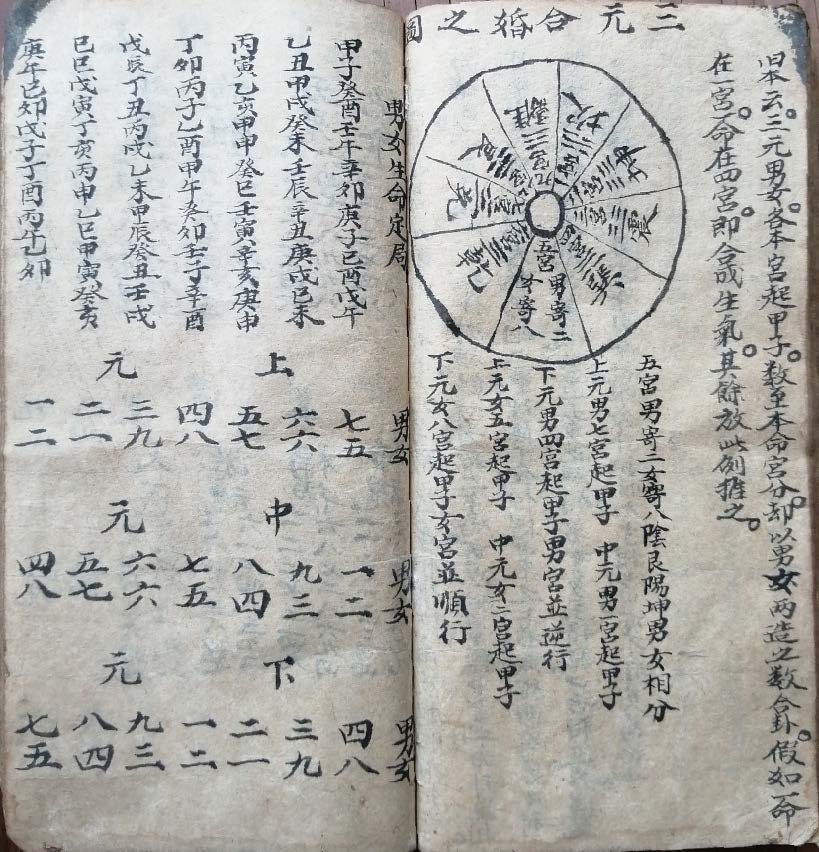 三元合婚之圖
旧本云。三元男女。各本宮起甲子。数至本命宮分。却以男女两造之数合卦。假如一命
在一宮。一命在四宮。即合成生氣。其餘放此例推之。
坎 一宮
坤 二宮
震 三宮
巽 四宮
五宮 男寄二 女寄八
乾 六宮
兌 七宮
艮 八宮
離 九宮
五宮男寄二女寄八陰艮陽坤男女相分
上元男七宮起甲子 中元男一宮起甲子
下元男四宮起甲子男宮並逆行
上元女五宮起甲子 中元女二宮起甲子
下元女八宮起甲子女宮並順行
男女生命定局
甲子癸酉壬午辛卯庚子己酉戊午
乙丑甲戌癸未壬辰辛丑庚戌己未
丙寅乙亥甲申癸巳壬寅辛亥庚申
丁卯丙子乙酉甲午癸卯壬子辛酉
戊辰丁丑丙戌乙未甲辰癸丑壬戌
己巳戊寅丁亥丙申乙巳甲寅癸亥
庚午己卯戊子丁酉丙午乙卯
上元
男女 七五 六六 五七 四八 三九 二一 一二
中元
男女 一二 九三 八四 七五 六六 五七 四八
下元
男女 四八 三九 二一 一二 九三 八四 七五